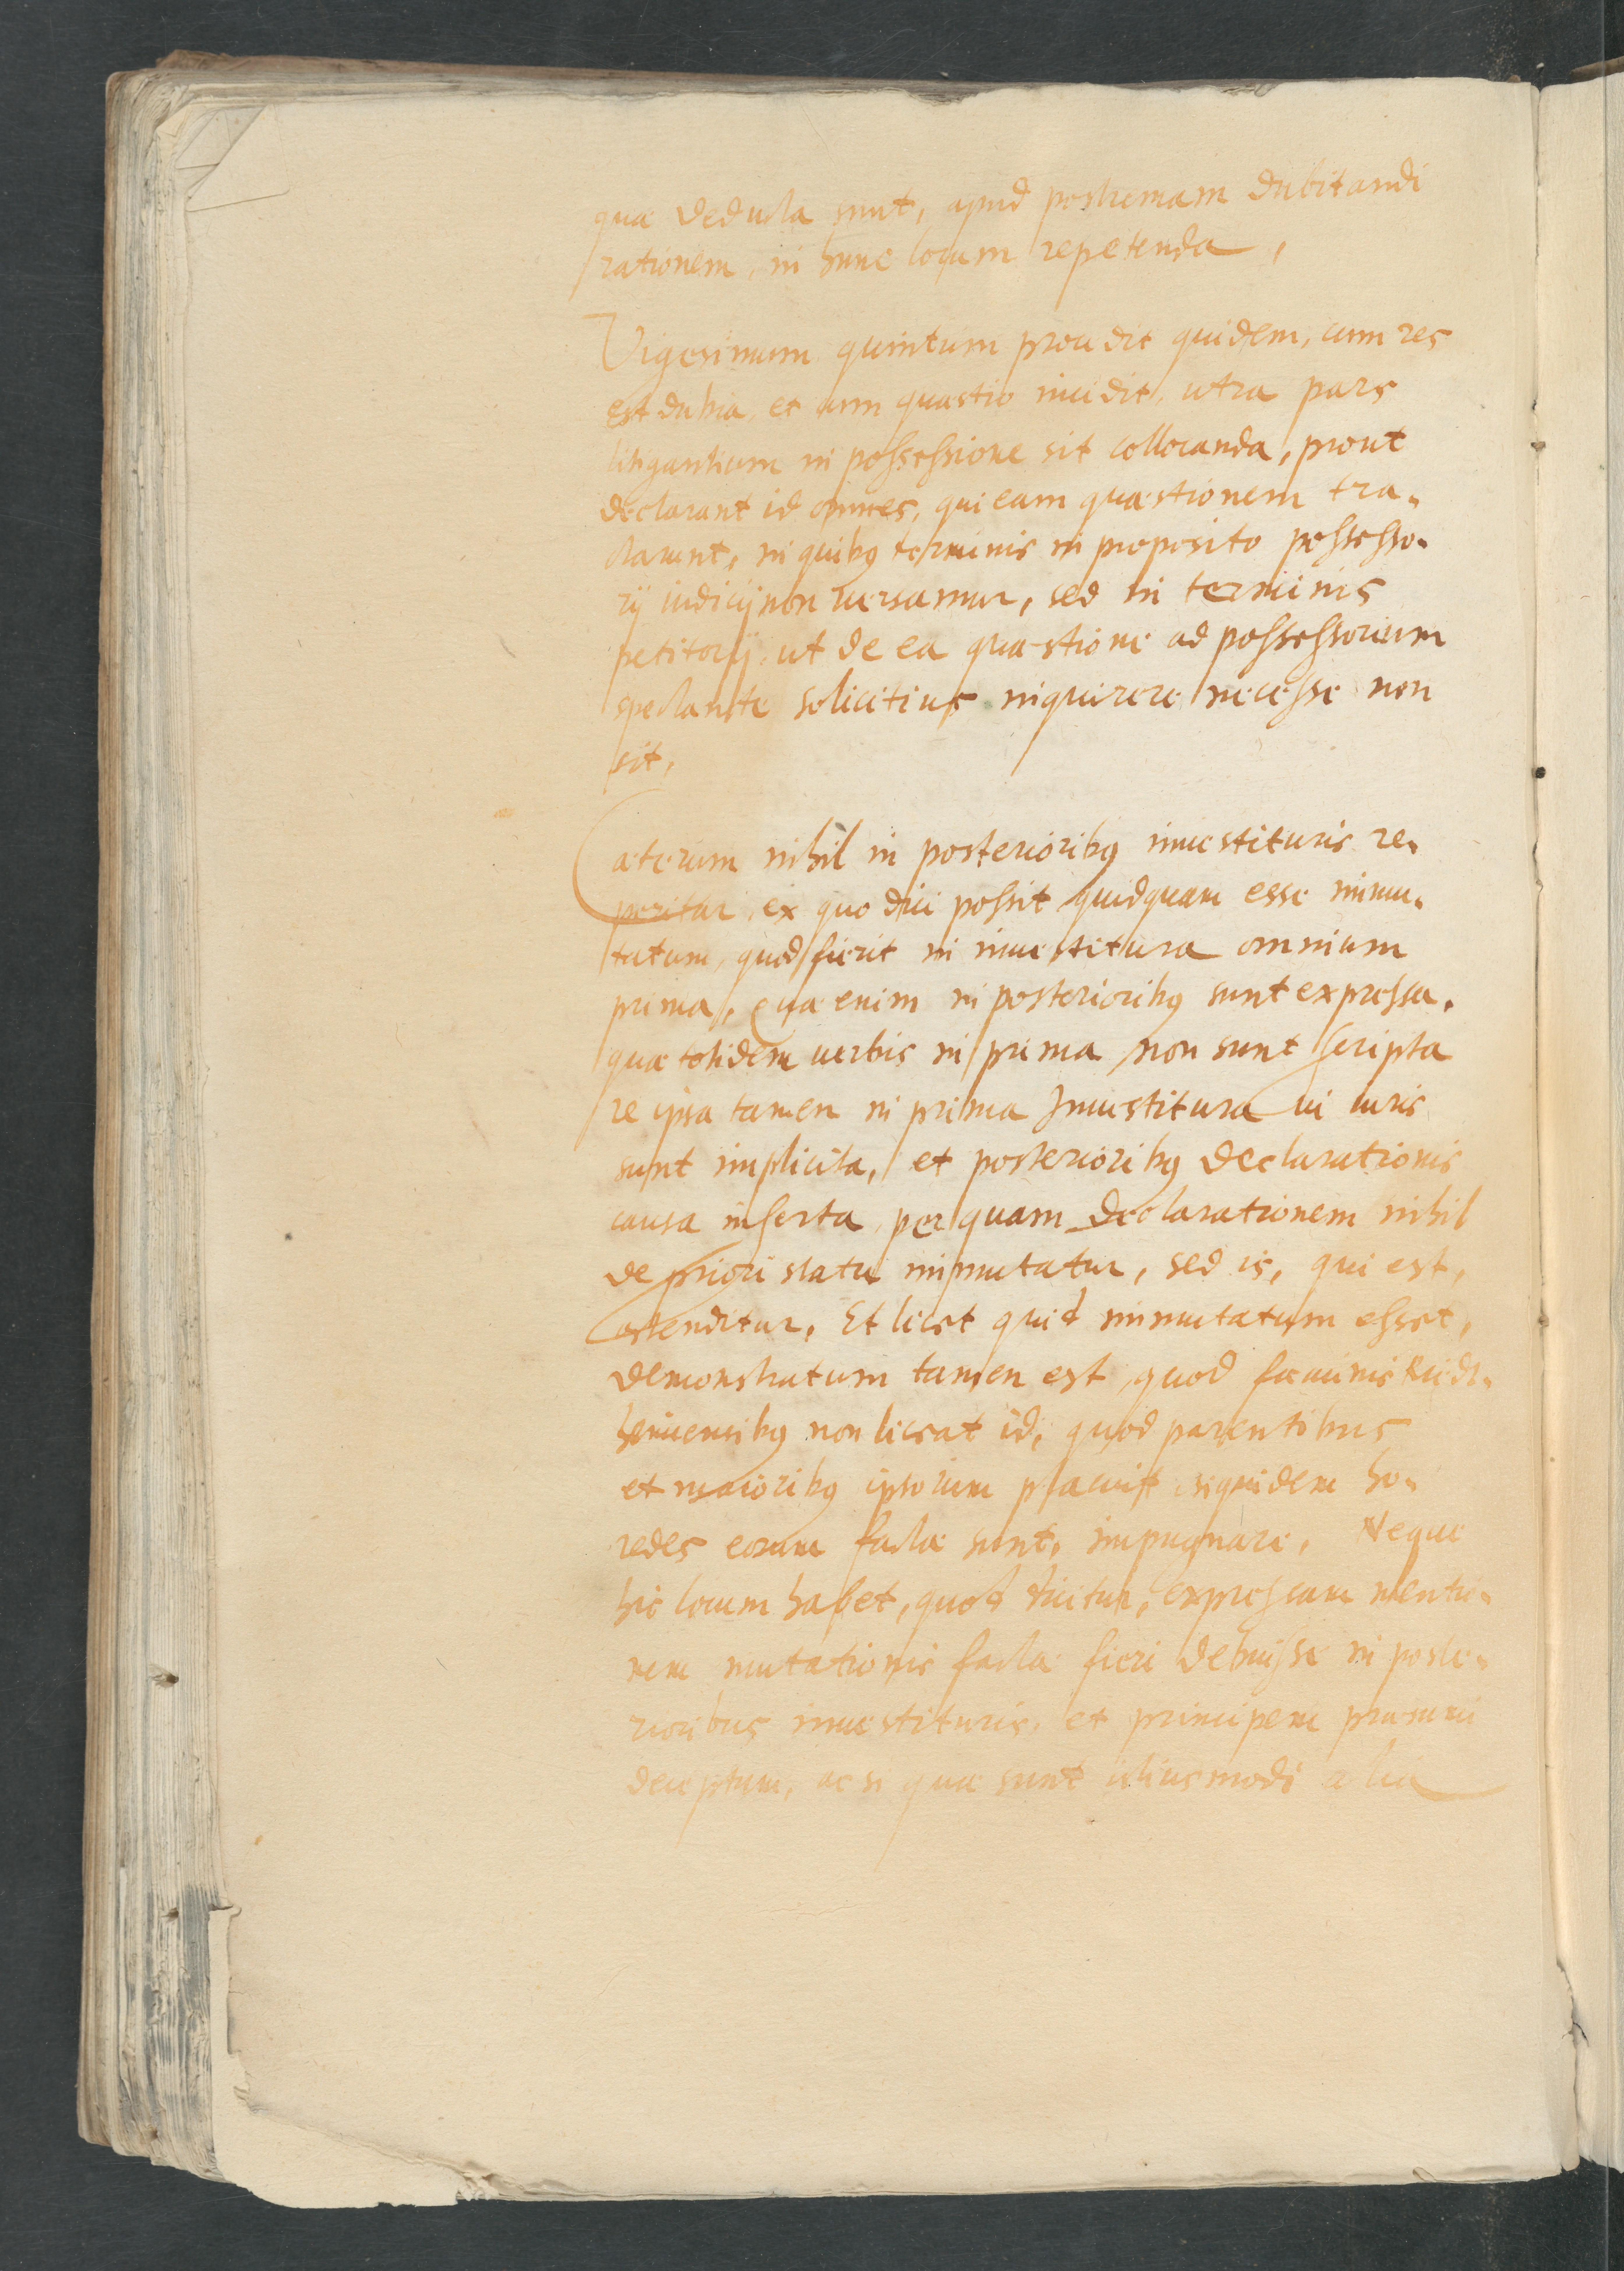 quæ deducta sunt, apud postremam dubitandi
rationem, in hunc locum repetenda,
Vigesimum quintum procedit quidem, cum res
est dubia, et cum quæstio incidit, utra pars
litigantium in possessione sit collocanda, prout
declarant id omnes, qui eam quæstionem tra-
ctarunt, in quibus terminis in proposito possesso-
rij iudicij non versamur, sed in terminis
petitorij, ut de ea quæstione ad possessorium
spectante solicitius inquirere necesse non
sit,
Cæterum nihil in posterioribus inuestituris re-
peritur, ex quo dici possit quidquam esse immu-
tatum, quod fuerit in inuestitura omnium
prima, Quæ enim in posterioribus sunt expressa,
quæ totidem uerbis in prima non sunt scripta
re ipsa tamen in prima Inuestitura ui iuris
sunt implicita, et posterioribus declarationis
causa inserta, per quam declarationem nihil
de priori statu immutatur, sed is, qui est,
ostenditur, Et licet quid immutatum esset,
demonstratum tamen est, quod fœminis Rudt-
heimensibus non liceat id, quod parentibus
et maioribus ipsorum placuit, siquidem hæ-
redes eorum factæ sunt, impugnare, Neque
hic locum habet, quod dicitur, expressam mentio-
nem mutationis factæ fieri debuisse in poste-
rioribus inuestituris, et principem præsumi
deceptum, ac si quæ sunt istiusmodi alia